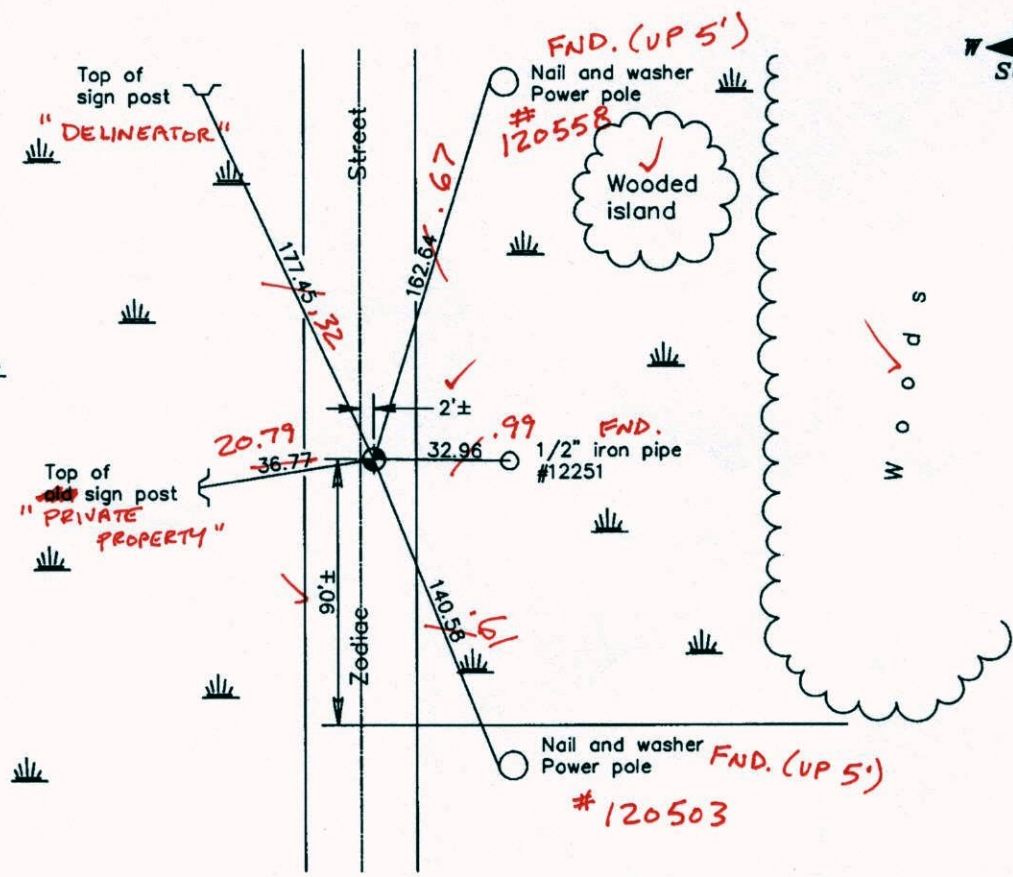 FND. (UP 5')
W
Top of
sign post
"DELINEATOR"
Nail and washer
Power pole
#
120558
Street
Wooded
island
177.45
.32
162.64
.67
Woods
2'±
20.79
36.77
32.96
.99
FND.
1/2" iron pipe
#12251
Top of
old sign post
"PRIVATE
PROPERTY"
90'±
Zodiac
140.58
.61
Nail and washer
Power pole
FND. (UP 5')
# 120503